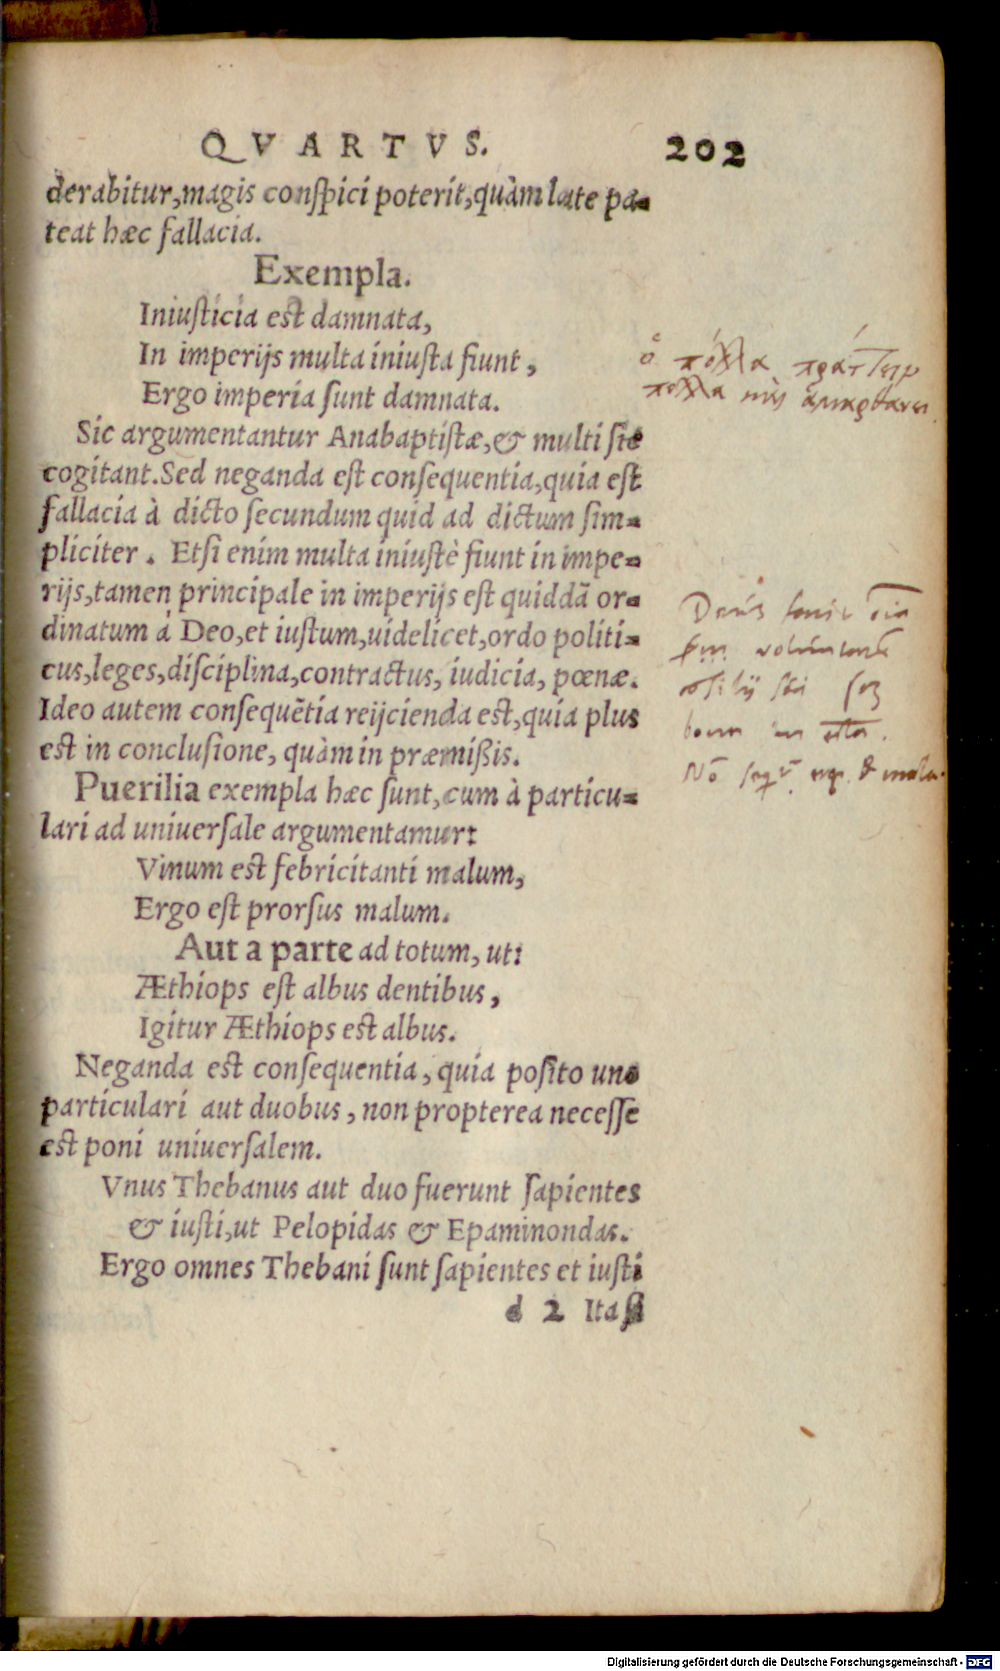 QVARTVS. 202
derabitur, magis conſpici poterit, quàm late pa-
teat hæc fallacia.
Exempla.
Iniuſticia est damnata,
In imperijs multa iniuſta fiunt,
Ergo imperia ſunt damnata.
Sic argumentantur Anabaptiſtæ, & multi ſic
cogitant. Sed neganda eſt conſequentia, quia eſt
fallacia à dicto ſecundum quid ad dictum ſim-
pliciter. Etſi enim multa iniuſtè fiunt in impe-
rijs, tamen principale in imperijs eſt quiddã or-
dinatum á Deo, et iuſtum, uidelicet, ordo politi-
cus, leges, diſciplina, contractus, iudicia, pœnæ.
Ideo autem conſequẽtia reijcienda est, quia plus
est in concluſione, quàm in præmiſsis.
Puerilia exempla hæc ſunt, cum à particu-
lari ad uniuerſale argumentamur:
Vinum est febricitanti malum,
Ergo eſt prorſus malum.
Aut a parte ad totum, ut:
Æthiops eſt albus dentibus,
Igitur Æthiops est albus.
Neganda est conſequentia, quia poſito uno
particulari aut duobus, non propterea neceſſe
est poni uniuerſalem.
Vnus Thebanus aut duo fuerunt ſapientes
& iuſti, ut Pelopidas & Epaminondas.
Ergo omnes Thebani ſunt ſapientes et iuſti
d 2 Ita ſi
ὁ πολλὰ πράττειν
πολλὰ
Nõ
Digitalisierung gefördert durch die Deutsche Forschungsgemeinschaft - DFG